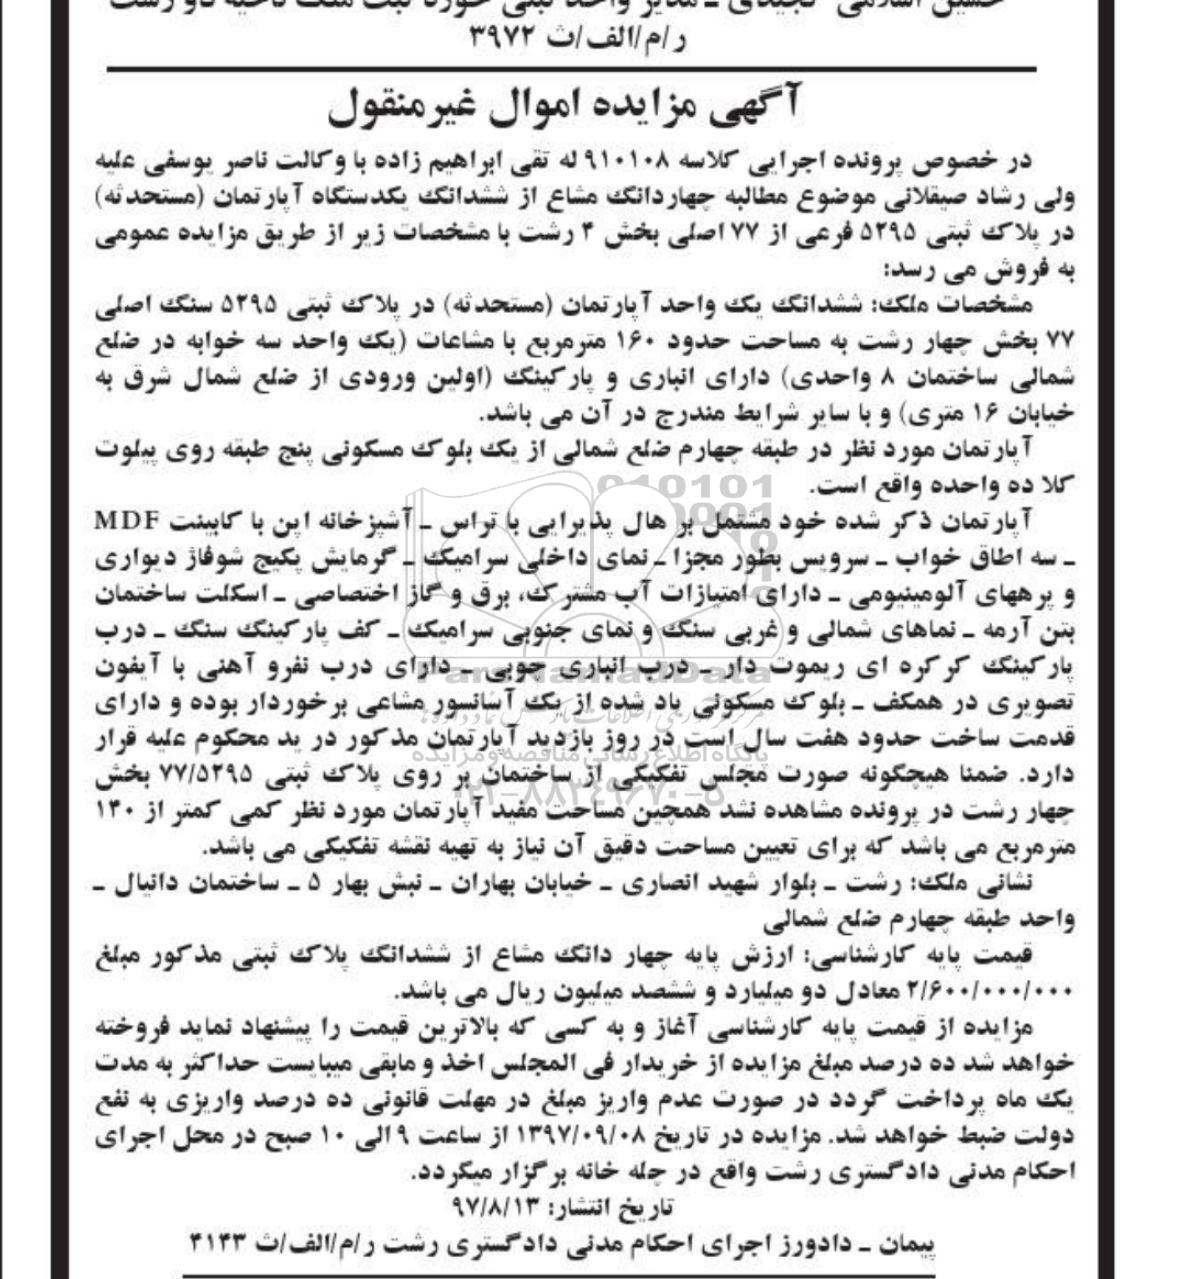 حسین اسلامی کجیدی ـ مدیر واحد ثبتی حوزه ثبت ملک ناحیه دو رشت
ر/م/الف/ث ۳۹۷۲
آگهی مزایده اموال غیرمنقول
در خصوص پرونده اجرایی کلاسه ۹۱۰۱۰۸ له تقی ابراهیم زاده با وکالت ناصر یوسفی علیه
ولی رشاد صیقلانی موضوع مطالبه چهاردانگ مشاع از ششدانگ یکدستگاه آپارتمان (مستحدثه)
در پلاک ثبتی ۵۲۹۵ فرعی از ۷۷ اصلی بخش ۴ رشت با مشخصات زیر از طریق مزایده عمومی
به فروش می رسد:
مشخصات ملک: ششدانگ یک واحد آپارتمان (مستحدثه) در پلاک ثبتی ۵۲۹۵ سنگ اصلی
۷۷ بخش چهار رشت به مساحت حدود ۱۶۰ مترمربع با مشاعات (یک واحد سه خوابه در ضلع
شمالی ساختمان ۸ واحدی) دارای انباری و پارکینگ (اولین ورودی از ضلع شمال شرق به
خیابان ۱۶ متری) و با سایر شرایط مندرج در آن می باشد.
آپارتمان مورد نظر در طبقه چهارم ضلع شمالی از یک بلوک مسکونی پنج طبقه روی پیلوت
کلا ده واحده واقع است.
آپارتمان ذکر شده خود مشتمل بر هال پذیرایی با تراس ـ آشپزخانه اپن با کابینت MDF
ـ سه اطاق خواب ـ سرویس بطور مجزا ـ نمای داخلی سرامیک ـ گرمایش پکیج شوفاژ دیواری
و پرههای آلومینیومی ـ دارای امتیازات آب مشترک، برق و گاز اختصاصی ـ اسکلت ساختمان
بتن آرمه ـ نماهای شمالی و غربی سنگ و نمای جنوبی سرامیک ـ کف پارکینگ سنگ ـ درب
پارکینگ کرکره ای ریموت دار ـ درب انباری چوبی ـ دارای درب نفرو آهنی با آیفون
تصویری در همکف ـ بلوک مسکونی یاد شده از یک آسانسور مشاعی برخوردار بوده و دارای
قدمت ساخت حدود هفت سال است در روز بازدید آپارتمان مذکور در ید محکوم علیه قرار
دارد. ضمنا هیچگونه صورت مجلس تفکیکی از ساختمان بر روی پلاک ثبتی ۷۷/۵۲۹۵ بخش
چهار رشت در پرونده مشاهده نشد همچنین مساحت مفید آپارتمان مورد نظر کمی کمتر از ۱۴۰
مترمربع می باشد که برای تعیین مساحت دقیق آن نیاز به تهیه نقشه تفکیکی می باشد.
نشانی ملک: رشت ـ بلوار شهید انصاری ـ خیابان بهاران ـ نبش بهار ۵ ـ ساختمان دانیال ـ
واحد طبقه چهارم ضلع شمالی
قیمت پایه کارشناسی: ارزش پایه چهار دانگ مشاع از ششدانگ پلاک ثبتی مذکور مبلغ
۲/۶۰۰/۰۰۰/۰۰۰ معادل دو میلیارد و ششصد میلیون ریال می باشد.
مزایده از قیمت پایه کارشناسی آغاز و به کسی که بالاترین قیمت را پیشنهاد نماید فروخته
خواهد شد ده درصد مبلغ مزایده از خریدار فی المجلس اخذ و مابقی میبایست حداکثر به مدت
یک ماه پرداخت گردد در صورت عدم واریز مبلغ در مهلت قانونی ده درصد واریزی به نفع
دولت ضبط خواهد شد. مزایده در تاریخ ۱۳۹۷/۰۹/۰۸ از ساعت ۹ الی ۱۰ صبح در محل اجرای
احکام مدنی دادگستری رشت واقع در چله خانه برگزار میگردد.
تاریخ انتشار: ۹۷/۸/۱۳
پیمان ـ دادورز اجرای احکام مدنی دادگستری رشت ر/م/الف/ث ۴۱۴۳
ParsNamadData
پایگاه اطلاع رسانی مناقصه و مزایده
۰۲۱-۸۸۳۴۹۶۷۰-۵